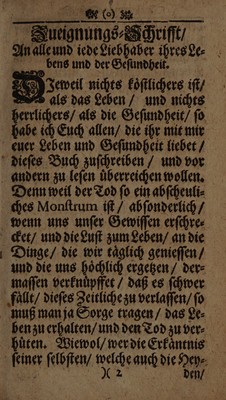 (o)
Zueignungs-Schrifft/
An alle und iede Liebhaber ihres Le-
bens und der Gesundheit.
DJeweil nichts köstlichers ist/
als das Leben/ und nichts
herrlichers/ als die Gesundheit/ so
habe ich Euch allen/ die ihr mit mir
euer Leben und Gesundheit liebet/
dieses Buch zuschreiben/ und vor
andern zu lesen überreichen wollen.
Denn weil der Tod so ein abscheuli-
ches Monstrum ist/ absonderlich/
wenn uns unser Gewissen erschre-
cket/ und die Lust zum Leben/ an die
Dinge/ die wir täglich geniessen/
und die uns höchlich ergetzen/ der-
massen verknüpfft/ daß es schwer
fällt/ dieses Zeitliche zu verlassen/ so
muß man ja Sorge tragen/ das Le-
ben zu erhalten/ und den Tod zu ver-
hüten. Wiewol/ wer die Erkäntnis
seiner selbsten/ welche auch die Hey-
)( 2 den/